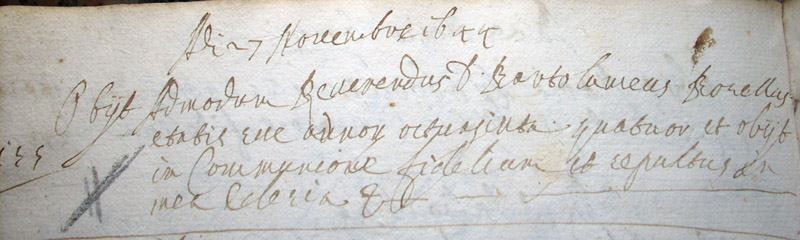 Adi 27 Novembre 1644
Obijt Admodum Reverendus D. Bartolameus Bonellus
etatis sue annor octuaginta quatuor et obijt
in Comunione fidelium et sepultus in
mea Eclesia &